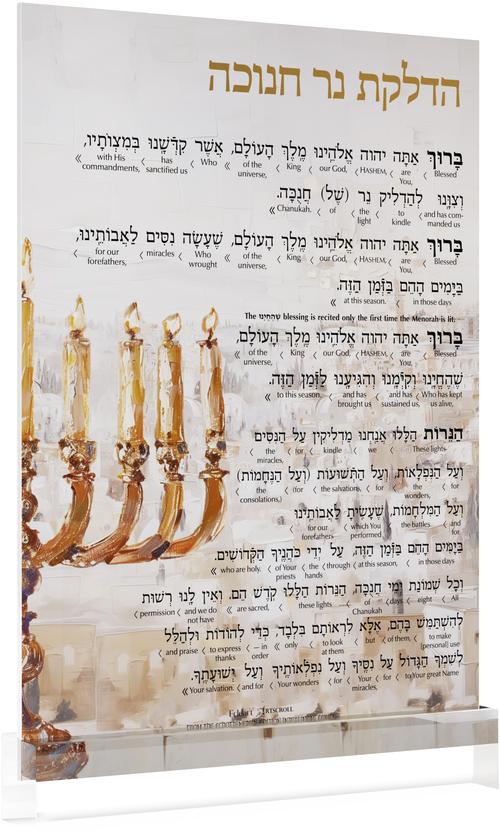 הדלקת נר חנוכה
בָּרוּךְ אַתָּה יהוה אֱלֹהֵינוּ מֶלֶךְ הָעוֹלָם, אֲשֶׁר קִדְּשָׁנוּ בְּמִצְוֹתָיו,
Blessed ‹ are You, ‹ HASHEM, ‹ our God, ‹ King ‹ of the universe, ‹ Who ‹ has sanctified us ‹ with His commandments, «
וְצִוָּנוּ לְהַדְלִיק נֵר (שֶׁל) חֲנֻכָּה.
and has commanded us ‹ to kindle ‹ the light ‹ of ‹ Chanukah. «
בָּרוּךְ אַתָּה יהוה אֱלֹהֵינוּ מֶלֶךְ הָעוֹלָם, שֶׁעָשָׂה נִסִּים לַאֲבוֹתֵינוּ,
Blessed ‹ are You, ‹ HASHEM, ‹ our God, ‹ King ‹ of the universe, ‹ Who wrought ‹ miracles ‹ for our forefathers, «
בַּיָּמִים הָהֵם בַּזְּמַן הַזֶּה.
in those days ‹ at this season. «
The שֶׁהֶחֱיָנוּ blessing is recited only the first time the Menorah is lit.
בָּרוּךְ אַתָּה יהוה אֱלֹהֵינוּ מֶלֶךְ הָעוֹלָם,
Blessed ‹ are You, ‹ HASHEM, ‹ our God, ‹ King ‹ of the universe, «
שֶׁהֶחֱיָנוּ וְקִיְּמָנוּ וְהִגִּיעָנוּ לַזְּמַן הַזֶּה.
Who has kept us alive, ‹ and has sustained us, ‹ and has brought us ‹ to this season. «
הַנֵּרוֹת הַלָּלוּ אֲנַחְנוּ מַדְלִיקִין עַל הַנִּסִּים
These lights ‹ we ‹ kindle ‹ for ‹ the miracles,
וְעַל הַנִּפְלָאוֹת, וְעַל הַתְּשׁוּעוֹת (וְעַל הַנֶּחָמוֹת)
for ‹ the wonders, ‹ for ‹ the salvations, ‹ (for ‹ the consolations,)
וְעַל הַמִּלְחָמוֹת, שֶׁעָשִׂיתָ לַאֲבוֹתֵינוּ
and for ‹ the battles ‹ which You performed ‹ for our forefathers
בַּיָּמִים הָהֵם בַּזְּמַן הַזֶּה, עַל יְדֵי כֹּהֲנֶיךָ הַקְּדוֹשִׁים.
in those days ‹ at this season, ‹ through ‹ the hands ‹ of Your priests ‹ who are holy. «
וְכָל שְׁמוֹנַת יְמֵי חֲנֻכָּה, הַנֵּרוֹת הַלָּלוּ קֹדֶשׁ הֵם. וְאֵין לָנוּ רְשׁוּת
All ‹ eight ‹ days ‹ of Chanukah ‹ these lights ‹ are sacred, ‹ and we do not have ‹ permission
לְהִשְׁתַּמֵּשׁ בָּהֶם, אֶלָּא לִרְאוֹתָם בִּלְבָד, כְּדֵי לְהוֹדוֹת וּלְהַלֵּל
to make [personal] use ‹ of them, ‹ but ‹ to look at them ‹ only ‹ — in order ‹ to express thanks ‹ and praise
לְשִׁמְךָ הַגָּדוֹל עַל נִסֶּיךָ וְעַל נִפְלְאוֹתֶיךָ וְעַל יְשׁוּעָתֶךָ.
to Your great Name ‹ for ‹ Your miracles, ‹ for ‹ Your wonders ‹ and for ‹ Your salvation. «
ARTSCROLL